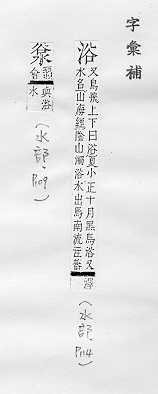 字彙補
浴
又鳥飛上下曰浴夏小正十月黑鳥浴又
水名山海經陰山濁浴水出焉南流注
澤
(水部 P114)
水
(水部 P109)